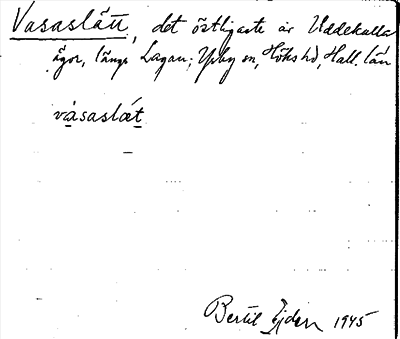 Vasaslätt, det östligaste av Uddekulla
ägor, längs Lagan; Ysby sn, Höks hd, Hall. län
vàsaslæt
Bertil Ejder 1945